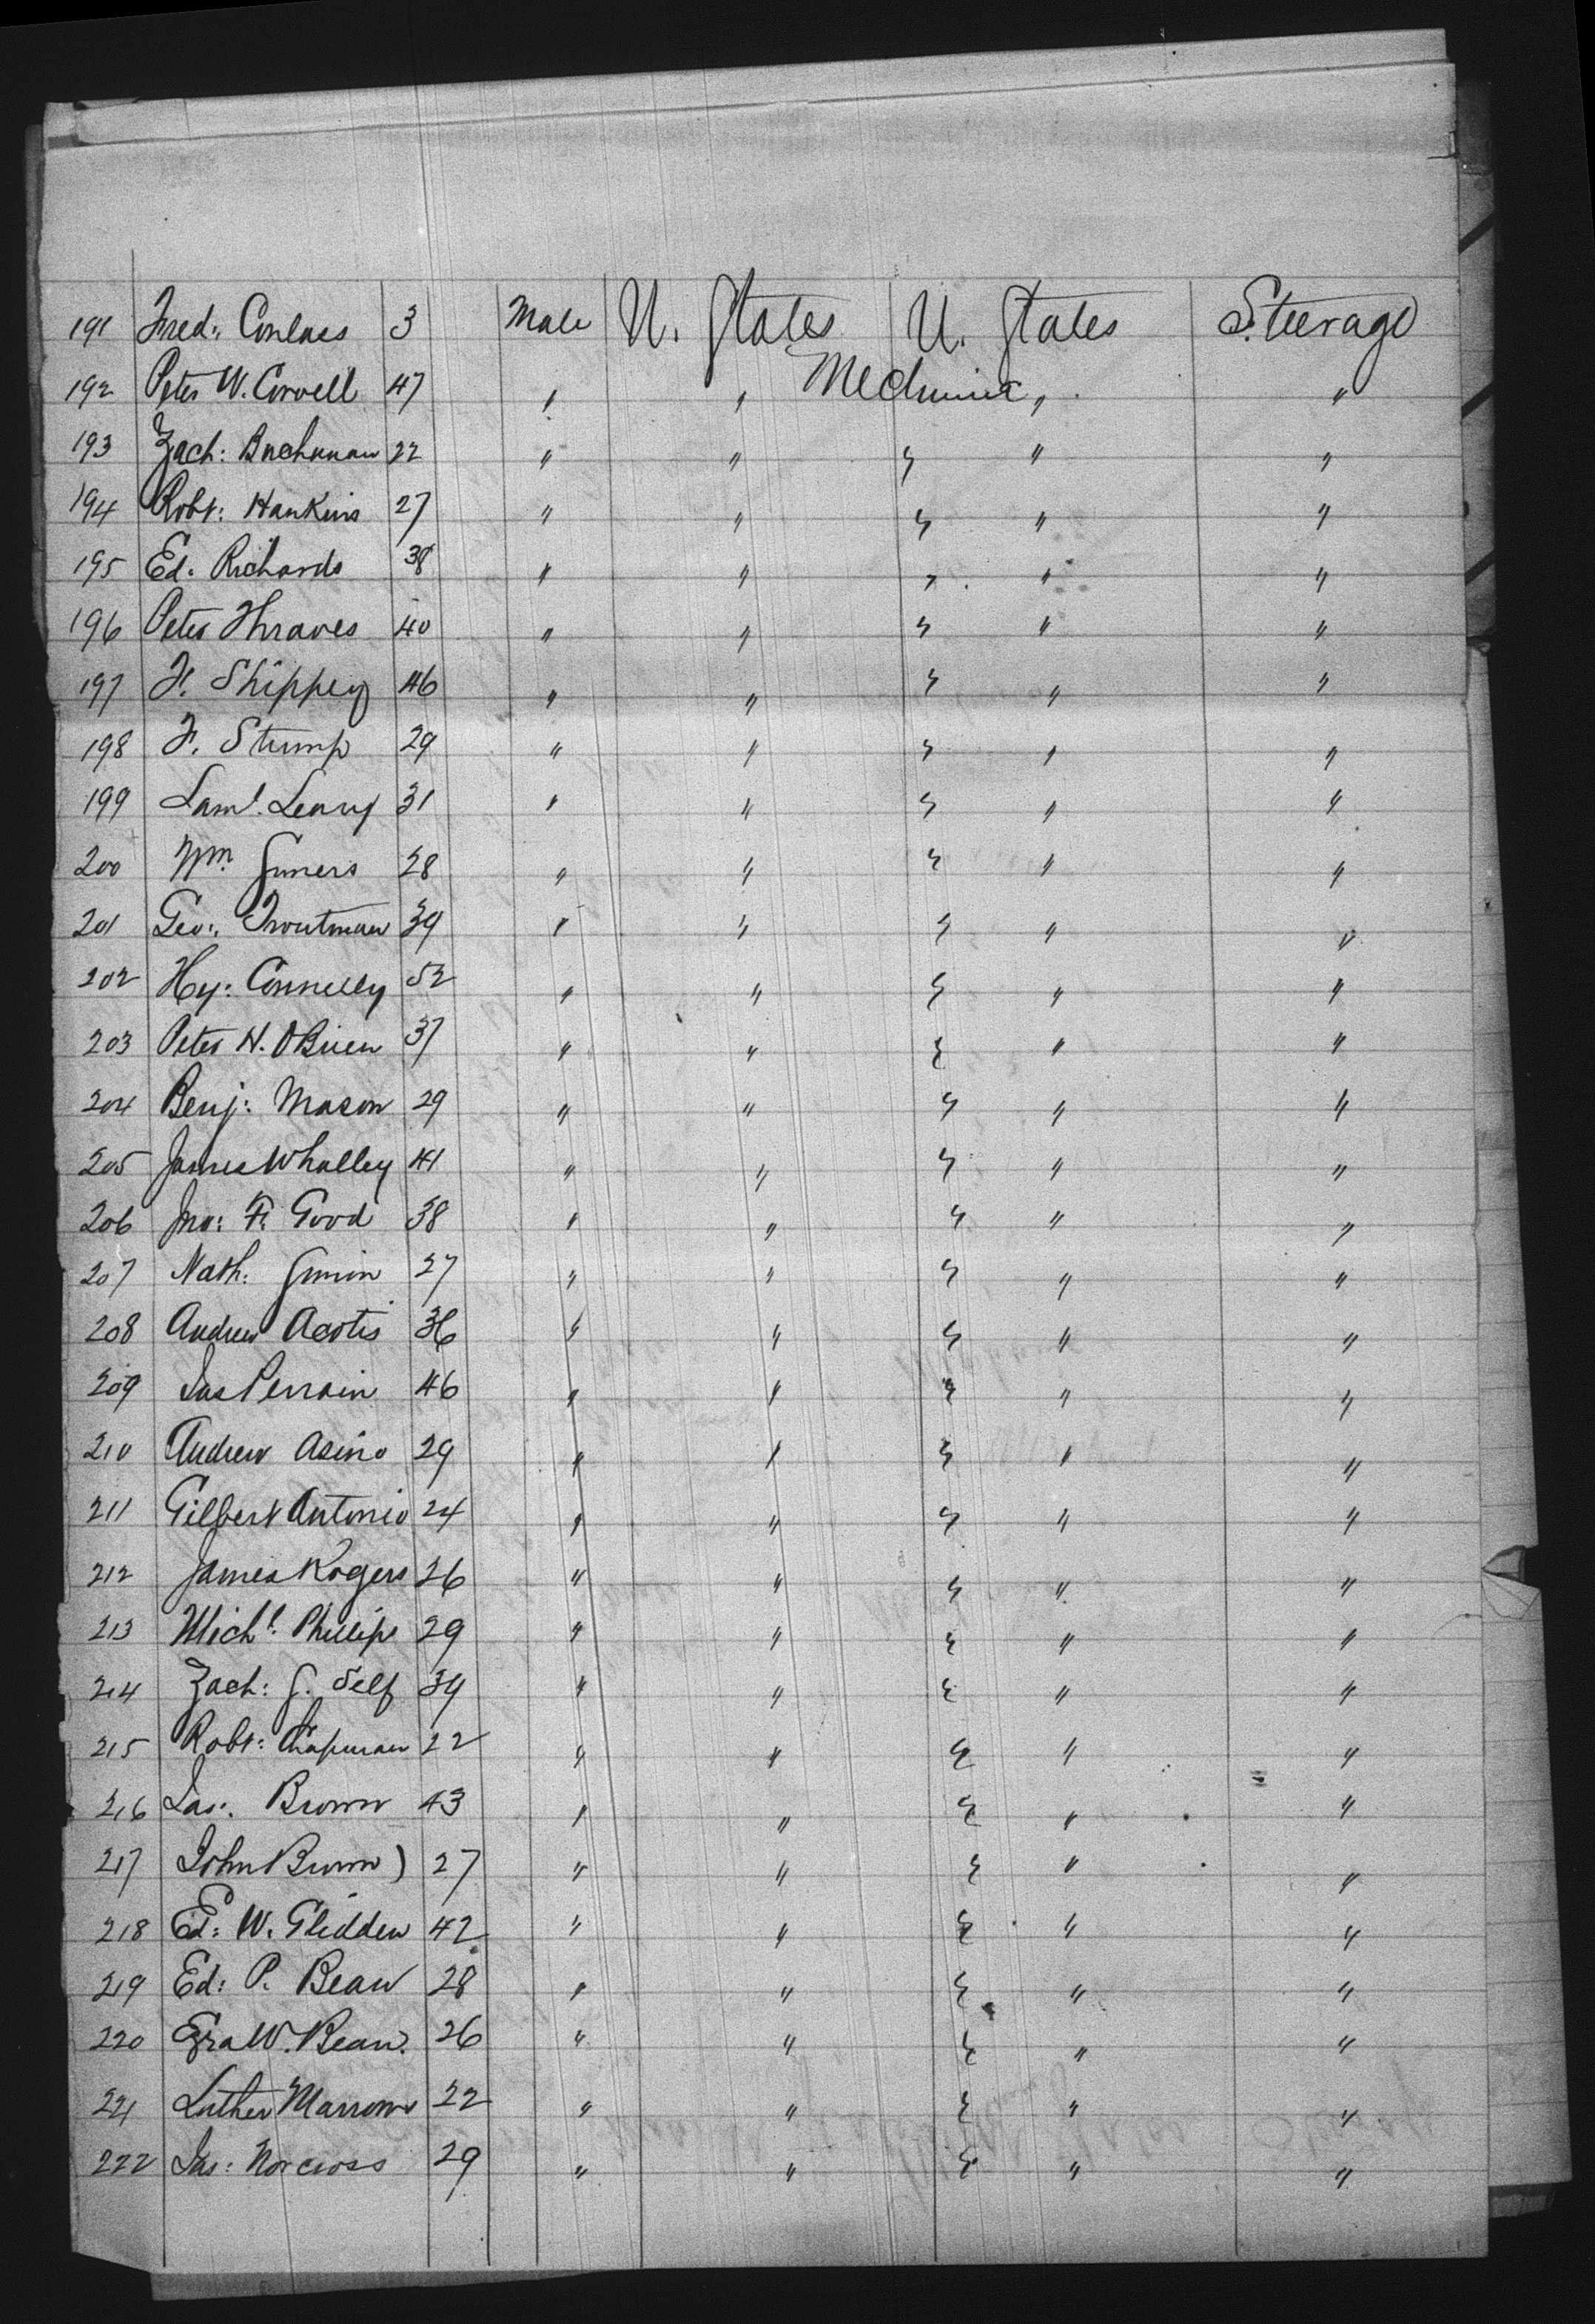 191 Fred: Conlaes 3 Male U. States U. States Steerage
192 Peter W. Corvell 47 " " Mechanic " "
193 Zach: Buchanan 22 " " " " "
194 Robt: Hankins 27 " " " " "
195 Ed. Richards 38 " " " " "
196 Peter Thraves 40 " " " " "
197 F. Shippey 46 " " " " "
198 F. Stump 29 " " " " "
199 Saml. Leary 31 " " " " "
200 Wm. 28 " " " " "
201 Geo: Troutman 39 " " " " "
202 Hy: Connelly 52 " " " " "
203 Peter H. OBrien 37 " " " " "
204 Benj: Mason 29 " " " " "
205 James Whalley 41 " " " " "
206 Jno: F. Good 38 " " " " "
207 Nath: 27 " " " " "
208 Andrew Acotis 36 " " " " "
209 Jas Perrain 46 " " " " "
210 Andrew Asino 29 " " " " "
211 Gilbert Antonio 24 " " " " "
212 James Rogers 26 " " " " "
213 Michl. Phillips 29 " " " " "
214 Zach: G. Self 39 " " " " "
215 Robt: Chapman 22 " " " " "
216 Jas: Brown 43 " " " " "
217 John Brown ) 27 " " " " "
218 Ed: W. Glidden 42 " " " " "
219 Ed: P. Bean 28 " " " " "
220 Ezra W. Bean. 26 " " " " "
221 Luther Marrow 22 " " " " "
222 Jas: Norcross 29 " " " " "